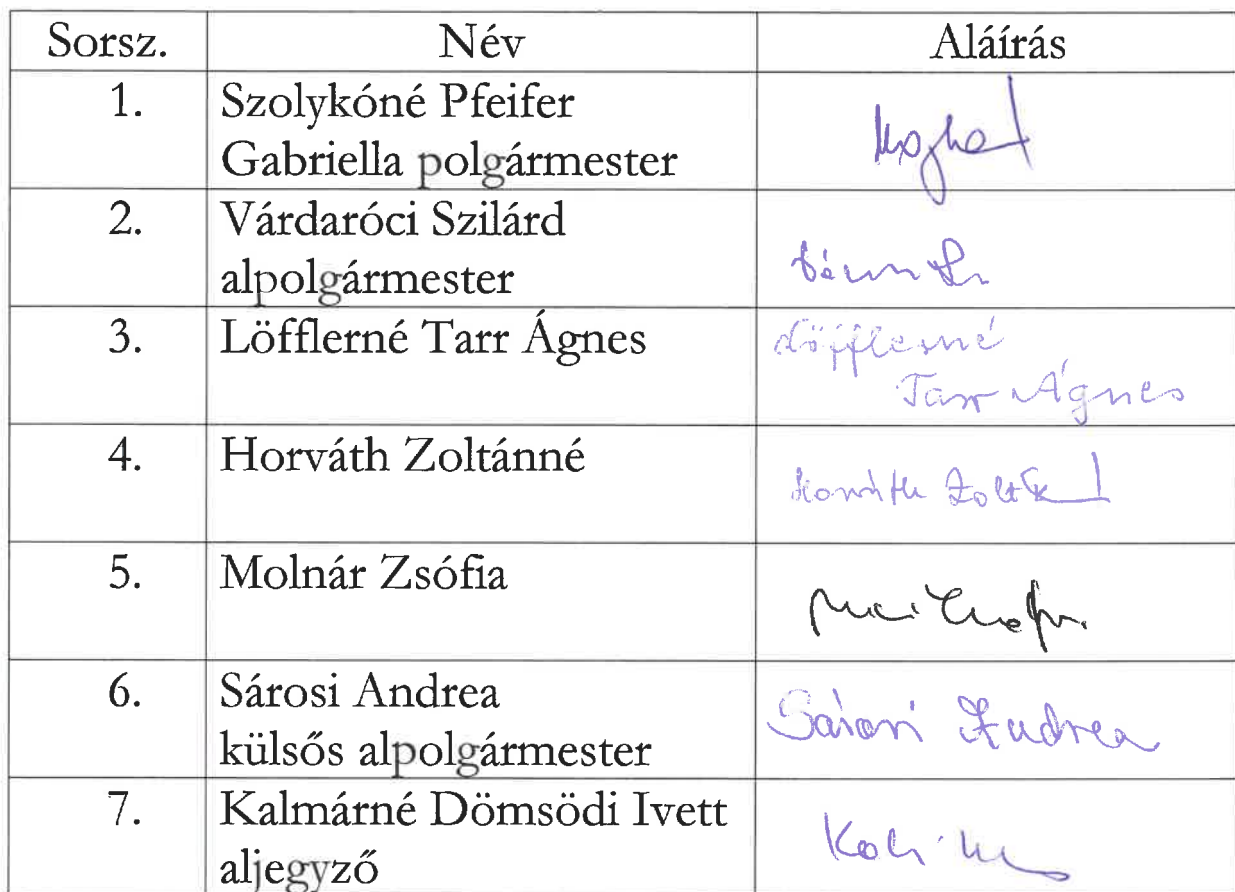 Sorsz. Név Aláírás
1. Szolykóné Pfeifer
Gabriella polgármester
2. Várdaróci Szilárd
alpolgármester
3. Löfflerné Tarr Ágnes Löfflerné
Tarr Ágnes
4. Horváth Zoltánné Horváth
5. Molnár Zsófia
6. Sárosi Andrea Sárosi Andrea
külsős alpolgármester
7. Kalmárné Dömsödi Ivett
aljegyző